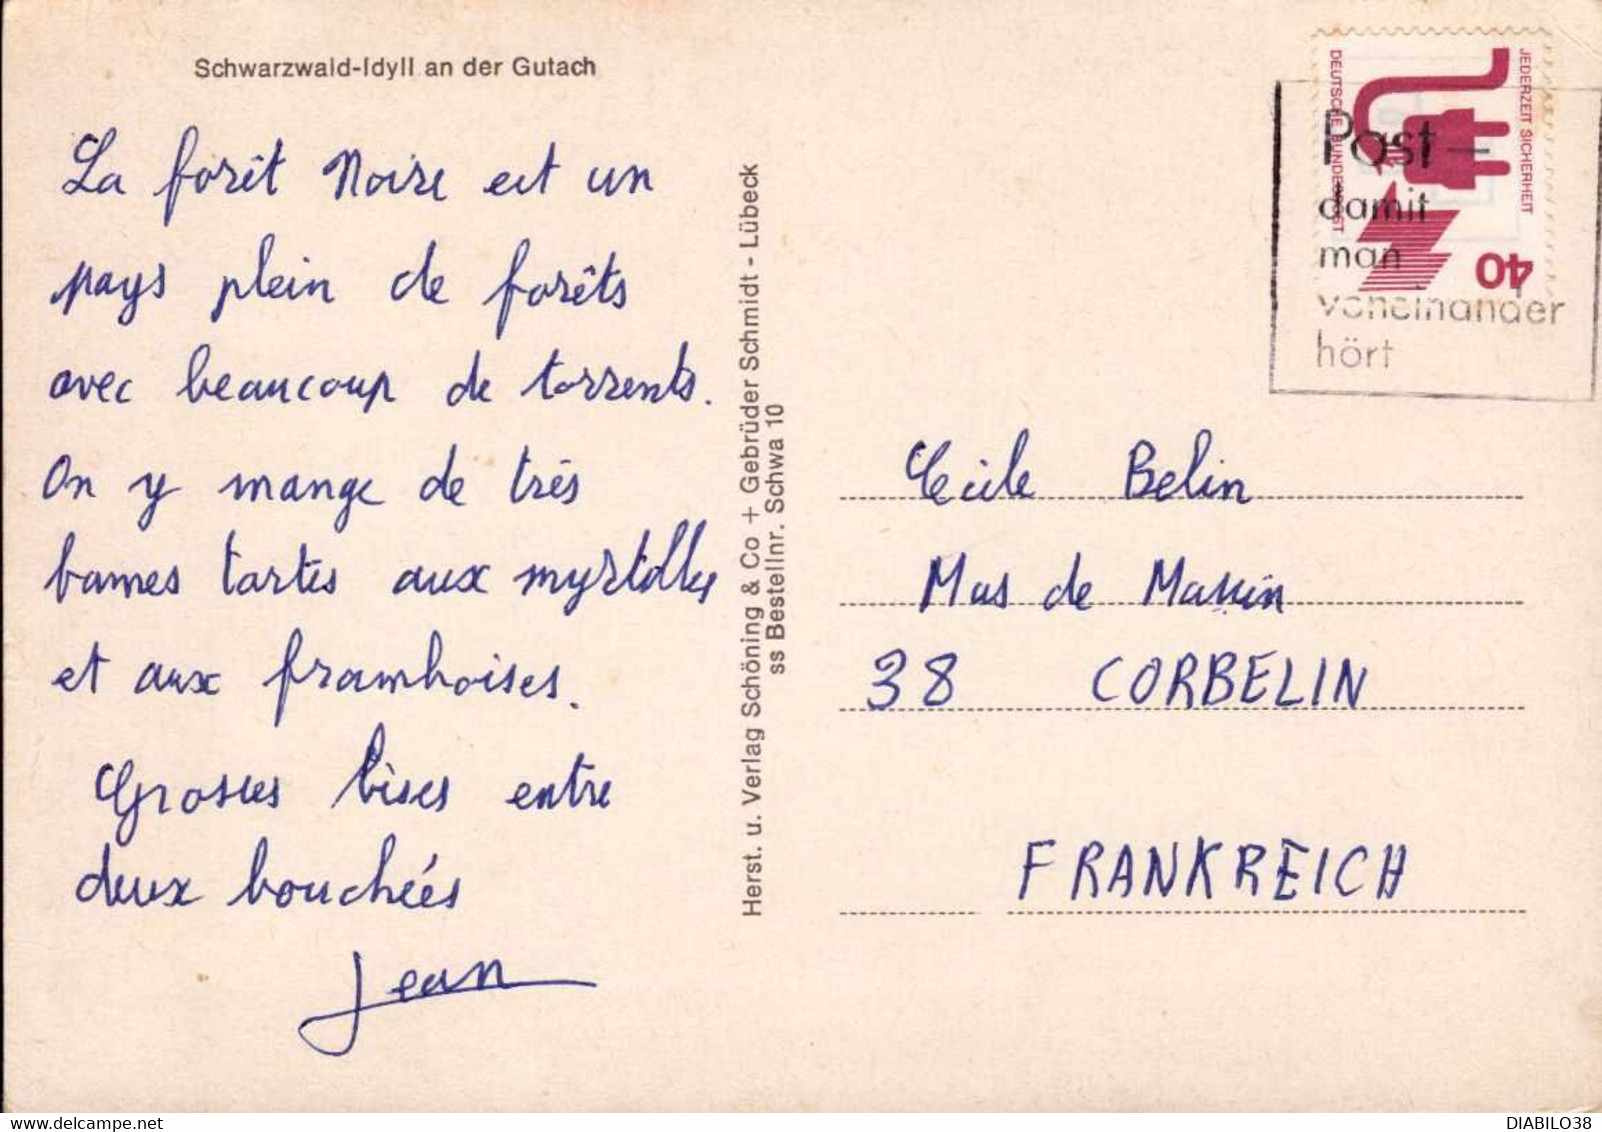 Schwarzwald-Idyll an der Gutach
La forêt Noire est un
pays plein de forêts
avec beaucoup de torrents.
On y mange de très
bonnes tartes aux myrtilles
et aux framboises.
Grosses bises entre
deux bouchées
Jean
Herst. u. Verlag Schöning & Co + Gebrüder Schmidt - Lübeck
ss Bestellnr. Schwa 10
DEUTSCHE BUNDESPOST
JEDERZEIT SICHERHEIT
40
Post –
damit
man
voneinander
hört
Cécile Belin
Mas de Massin
38 CORBELIN
FRANKREICH
DIABILO38